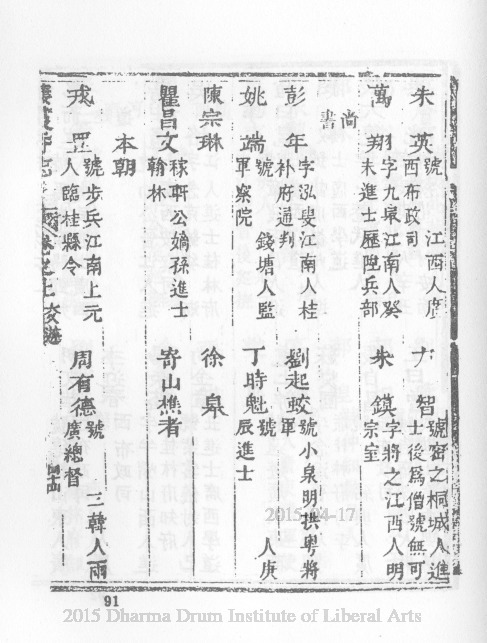 朱英號 江西人廣西布政司
方智號密之桐城人進士後爲僧號無可
萬翔字九皐江南人癸未進士歷陞兵部尚書
朱鏌字將之江西人明宗室
彭年字泓叟江南人桂林府通判
劉起蛟號小泉明拱粤將軍
姚端號 錢塘人監軍察院
丁時魁號 人庚辰進士
陳宗琳
徐皐
瞿昌文稼軒公嫡孫進士翰林
寄山樵者
本朝
號步兵江南上元人臨桂縣令
周有德號 三韓人兩廣總督
2015-04-17
91
2015 Dharma Drum Institute of Liberal Arts